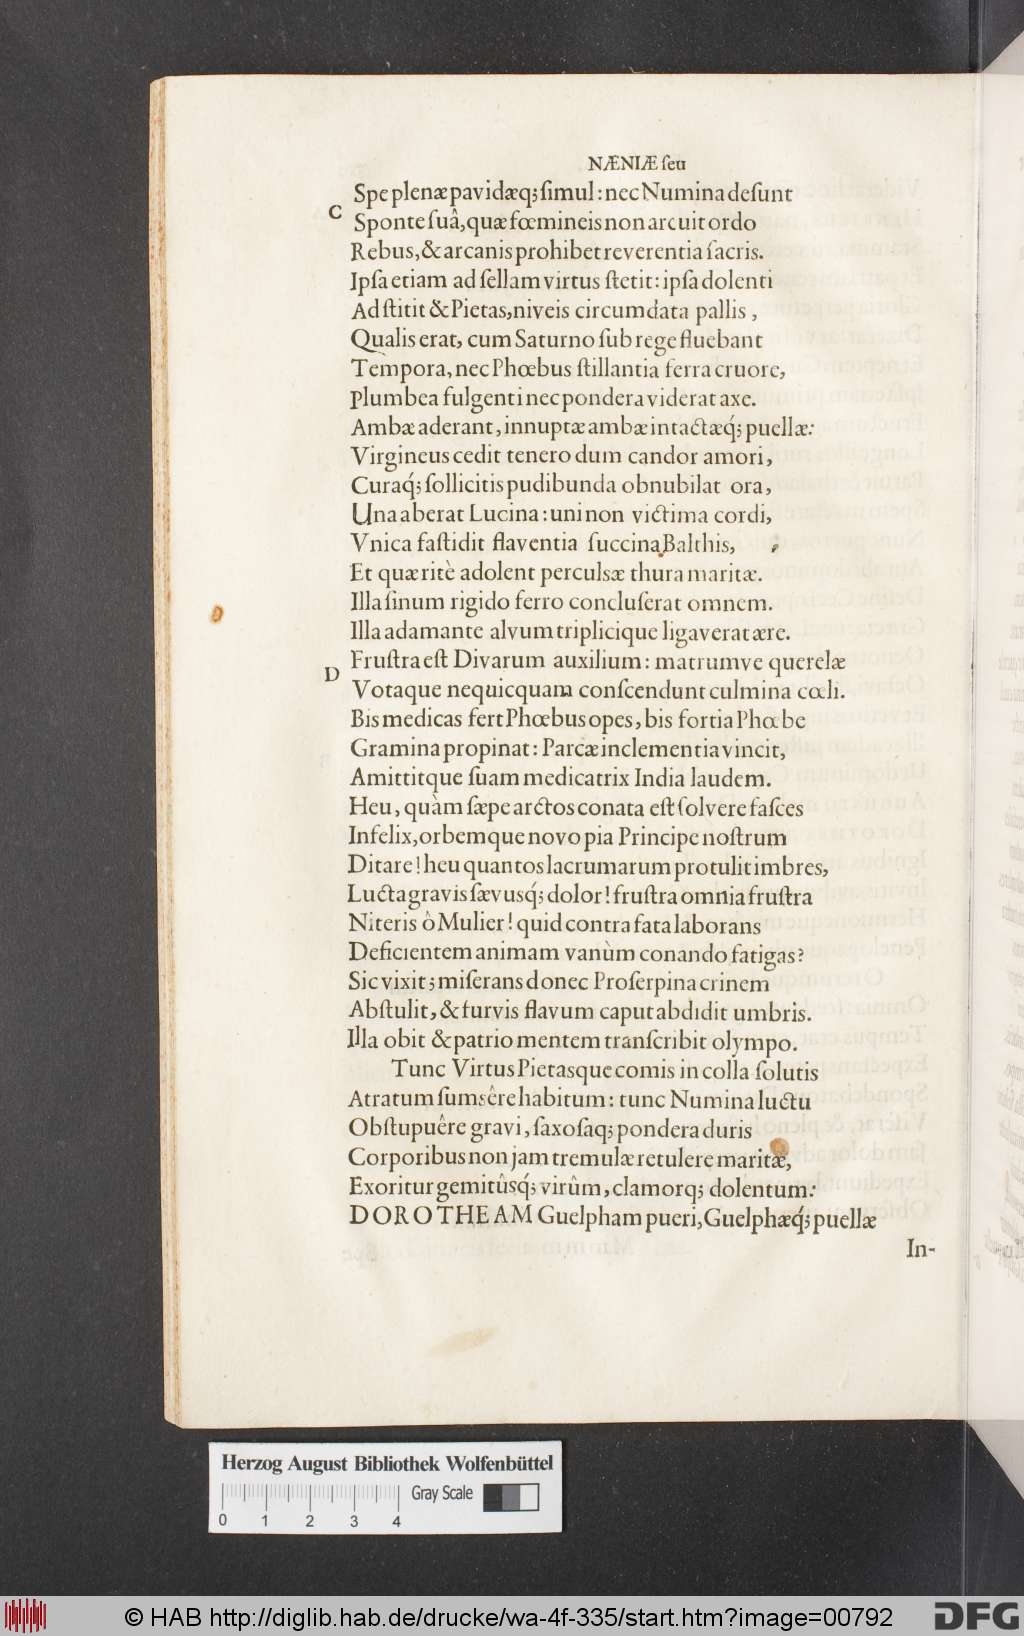 NÆNIÆ ſeu
Spe plenæ pavidæq́; ſimul: nec Numina deſunt
C
Sponte ſuâ, quæ fœmineis non arcuit ordo
Rebus, & arcanis prohibet reverentia ſacris.
Ipſa etiam ad ſellam virtus ſtetit: ipſa dolenti
Adſtitit & Pietas, niveis circumdata pallis,
Qualis erat, cum Saturno ſub rege fluebant
Tempora, nec Phœbus ſtillantia ferra cruore,
Plumbea fulgenti nec pondera viderat axe.
Ambæ aderant, innuptæ ambæ intactæq́; puellæ:
Virgineus cedit tenero dum candor amori,
Curaq́; ſollicitis pudibunda obnubilat ora,
Una aberat Lucina: uni non victima cordi,
Vnica faſtidit flaventia ſuccina Balthis,
Et quæ ritè adolent perculsæ thura maritæ.
Illa ſinum rigido ferro concluſerat omnem.
Illa adamante alvum triplicique ligaverat ære.
Fruſtra eſt Divarum auxilium: matrumve querelæ
D
Votaque nequicquam conſcendunt culmina cœli.
Bis medicas fert Phœbus opes, bis fortia Phœbe
Gramina propinat: Parcæ inclementia vincit,
Amittitque ſuam medicatrix India laudem.
Heu, quàm ſæpe arctos conata eſt ſolvere faſces
Infelix, orbemque novo pia Principe noſtrum
Ditare! heu quantos lacrumarum protulit imbres,
Lucta gravis ſævusq́; dolor! fruſtra omnia fruſtra
Niteris ô Mulier! quid contra fata laborans
Deficientem animam vanùm conando fatigas?
Sic vixit; miſerans donec Proſerpina crinem
Abſtulit, & furvis flavum caput abdidit umbris.
Illa obit & patrio mentem tranſcribit olympo.
Tunc Virtus Pietasque comis in colla ſolutis
Atratum ſumsêre habitum: tunc Numina luctu
Obſtupuêre gravi, ſaxoſaq; pondera duris
Corporibus non jam tremulæ retulere maritæ,
Exoritur gemitûsq́; virûm, clamorq; dolentum:
DOROTHEAM Guelpham pueri, Guelphæq́; puellæ
In-
Herzog August Bibliothek Wolfenbüttel
0 1 2 3 4
Gray Scale
© HAB http://diglib.hab.de/drucke/wa-4f-335/start.htm?image=00792
DFG